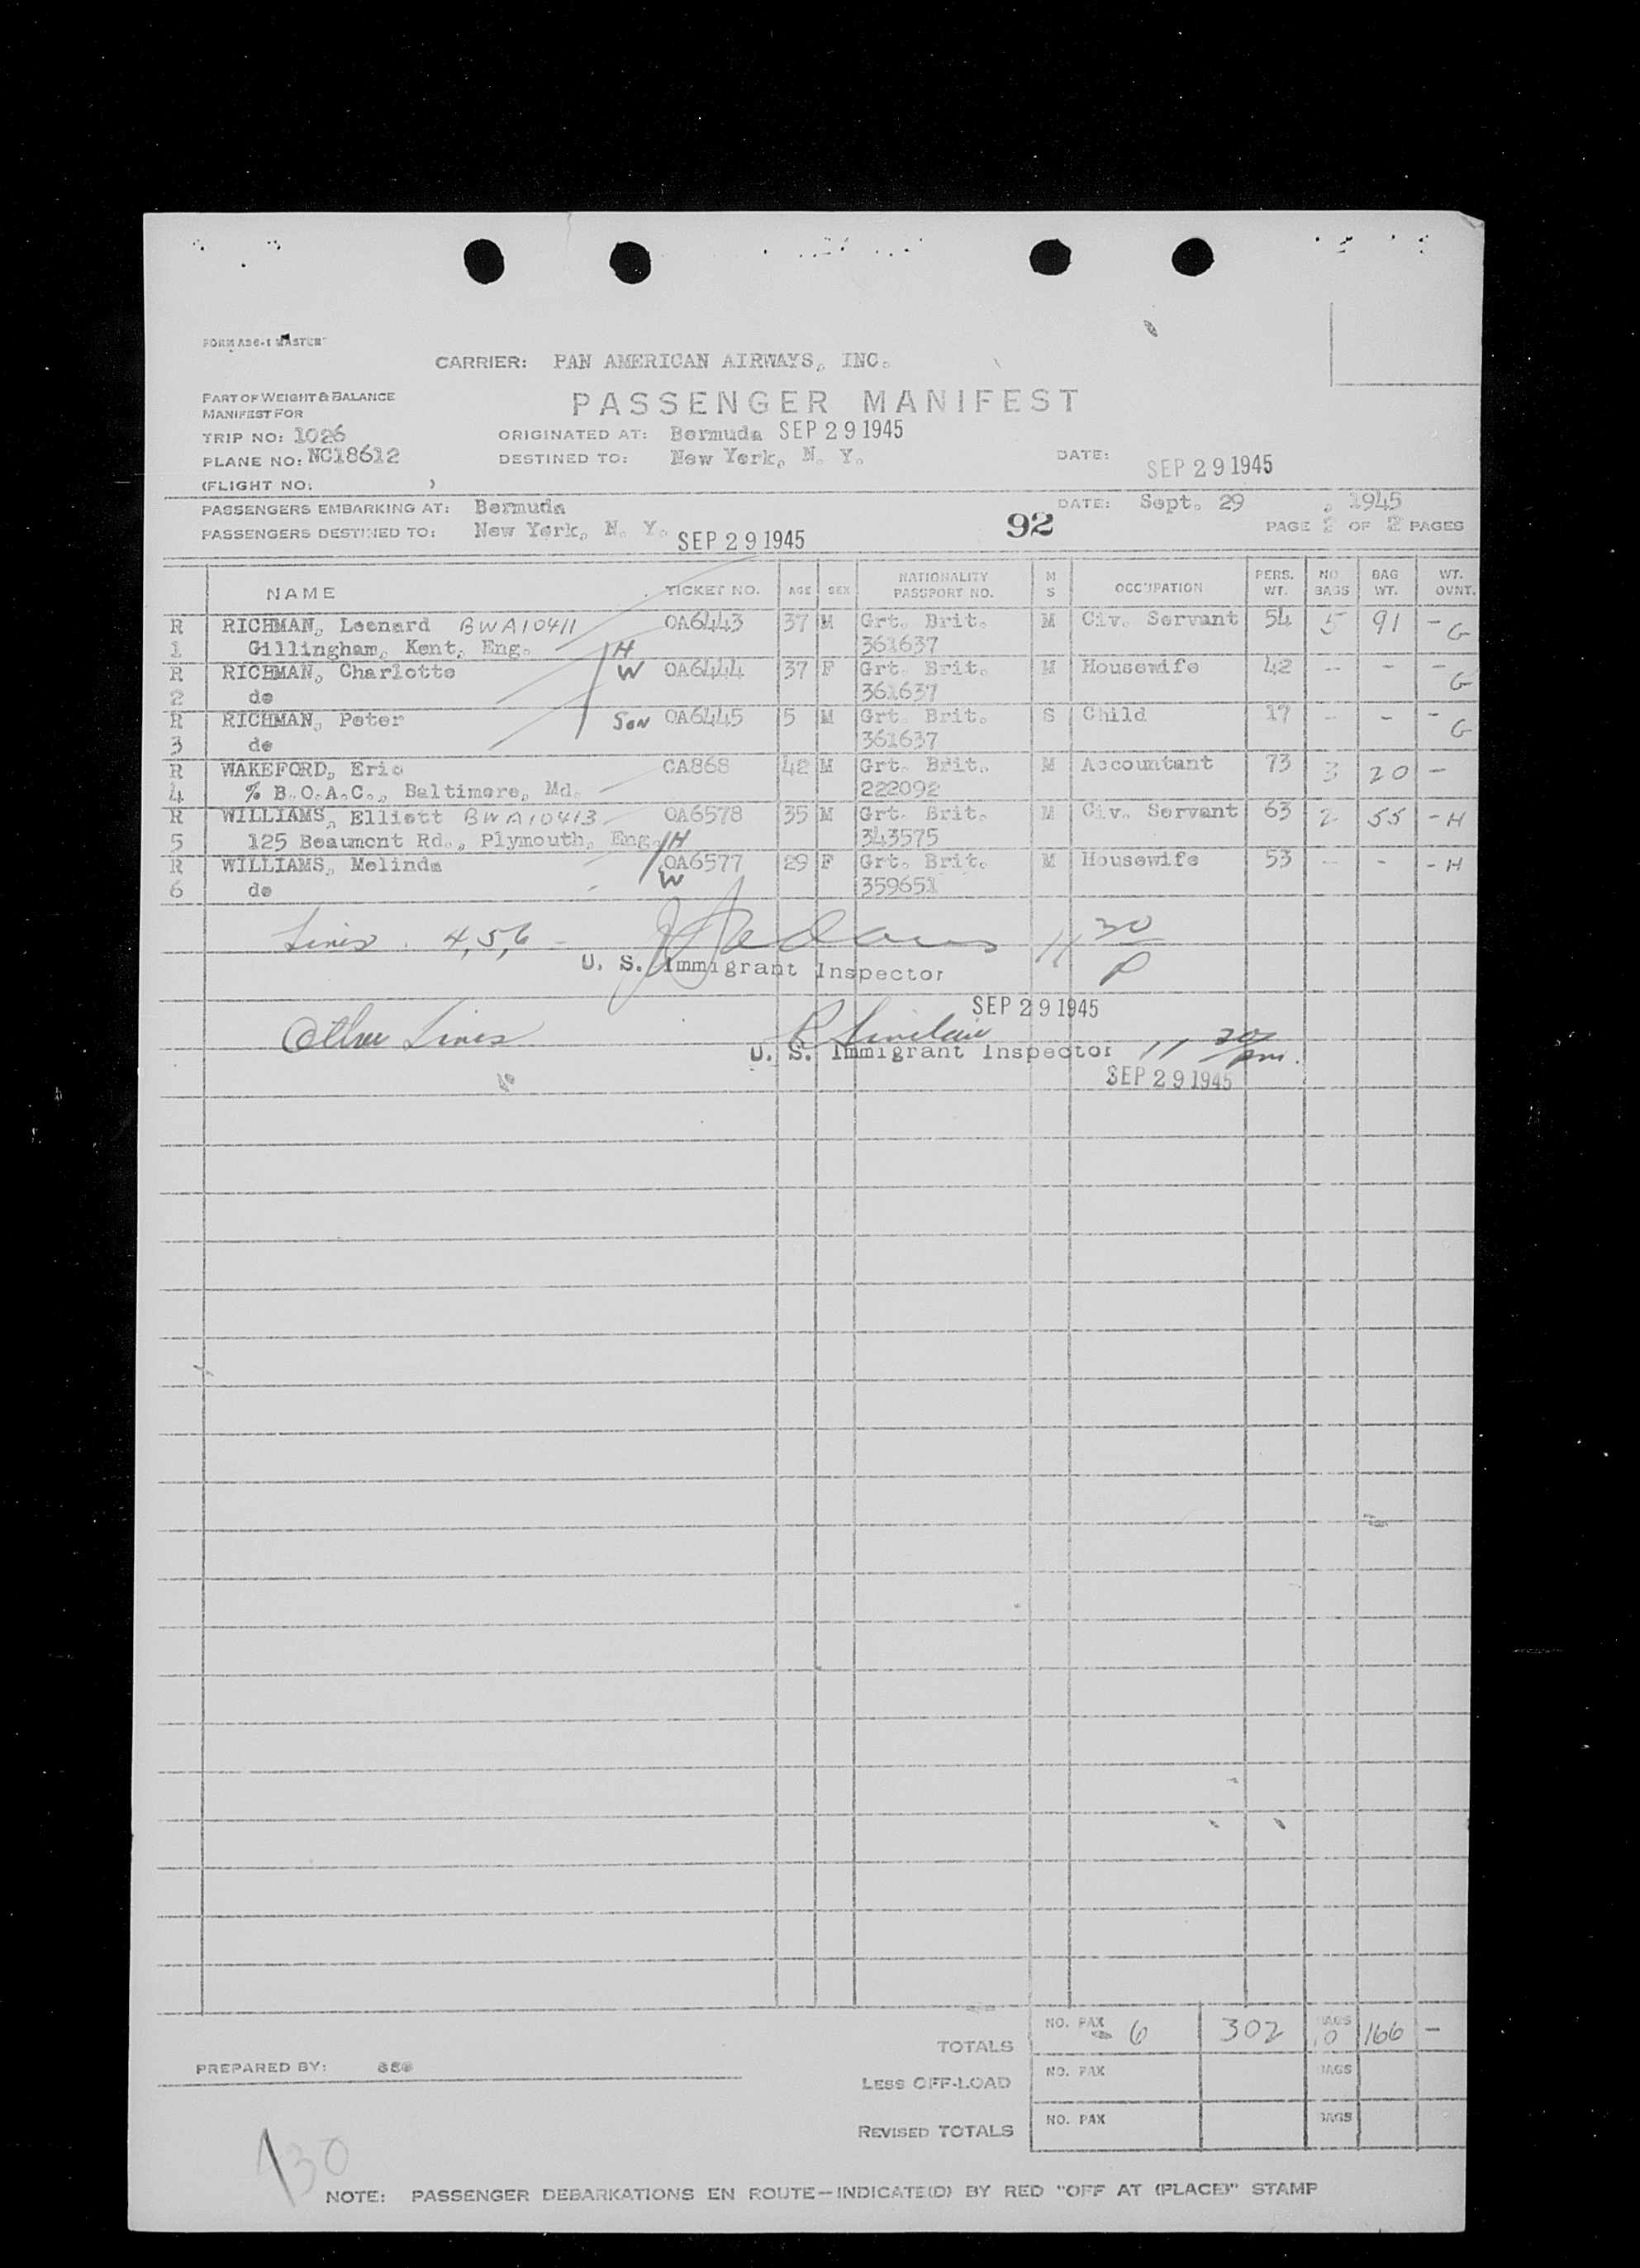 FORM ASC-1 MASTER
CARRIER: PAN AMERICAN AIRWAYS, INC.
PART OF WEIGHT & BALANCE
MANIFEST FOR
PASSENGER MANIFEST
TRIP NO: 1026 ORIGINATED AT: Bermuda SEP 29 1945
PLANE NO: NC18612 DESTINED TO: New York, N. Y. DATE: SEP 29 1945
(FLIGHT NO: )
PASSENGERS EMBARKING AT: Bermuda DATE: Sept. 29, 1945
PASSENGERS DESTINED TO: New York, N. Y. SEP 29 1945 92 PAGE 2 OF 2 PAGES
NAME TICKET NO. AGE SEX NATIONALITY PASSPORT NO. M S OCCUPATION PERS. WT. NO BAGS BAG WT. WT. OVNT.
R RICHMAN, Leonard BWA10411 OA6443 37 M Grt. Brit. M Civ. Servant 54 5 91 - G
1 Gillingham, Kent, Eng. H 361637
R RICHMAN, Charlotte W OA6444 37 F Grt. Brit. M Housewife 42 - - - G
2 do 361637
R RICHMAN, Peter Son OA6445 5 M Grt. Brit. S Child 17 - - - G
3 do 361637
R WAKEFORD, Eric CA868 42 M Grt. Brit. M Accountant 73 3 20 -
4 % B.O.A.C., Baltimore, Md. 222092
R WILLIAMS, Elliott BWA10413 OA6578 35 M Grt. Brit. M Civ. Servant 63 2 55 - H
5 125 Beaumont Rd., Plymouth, Eng. H 343575
R WILLIAMS, Melinda OA6577 29 F Grt. Brit. M Housewife 53 - - - H
6 do W 359651
Lines 4,5,6 - Adams 11 30 P
U. S. Immigrant Inspector
SEP 29 1945
Other Lines Sinclair
U. S. Immigrant Inspector 11 30 pm.
SEP 29 1945
TOTALS NO. PAX 6 302 BAGS 10 166 -
PREPARED BY:
LESS OFF-LOAD NO. PAX BAGS
REVISED TOTALS NO. PAX BAGS
130
NOTE: PASSENGER DEBARKATIONS EN ROUTE—INDICATE(D) BY RED "OFF AT (PLACE)" STAMP